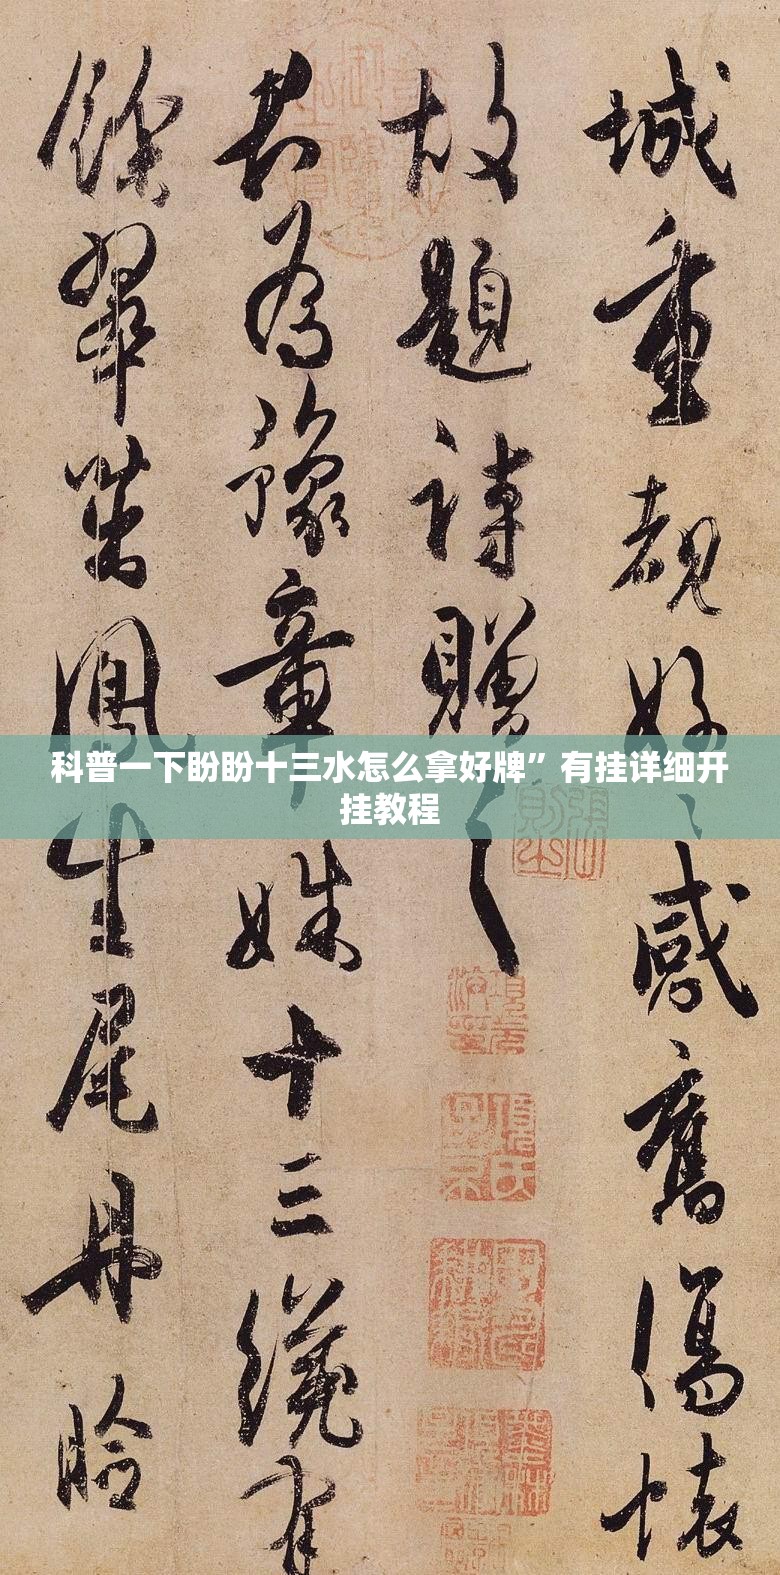 城重覩好感舊傷懷
故題詩贈之
君為豫章姝十三纔有
餘翠茁鳳生尾丹臉
科普一下盼盼十三水怎么拿好牌”有挂详细开
挂教程